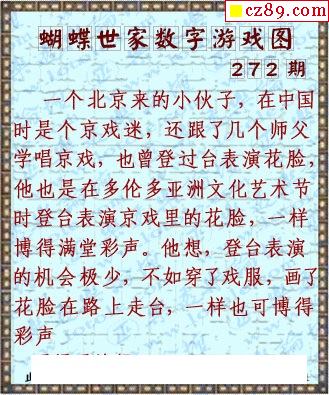 cz89.com
蝴蝶世家数字游戏图
272期
一个北京来的小伙子，在中国
时是个京戏迷，还跟了几个师父
学唱京戏，也曾登过台表演花脸，
他也是在多伦多亚洲文化艺术节
时登台表演京戏里的花脸，一样
博得满堂彩声。他想，登台表演
的机会极少，不如穿了戏服，画了
花脸在路上走台，一样也可博得
彩声